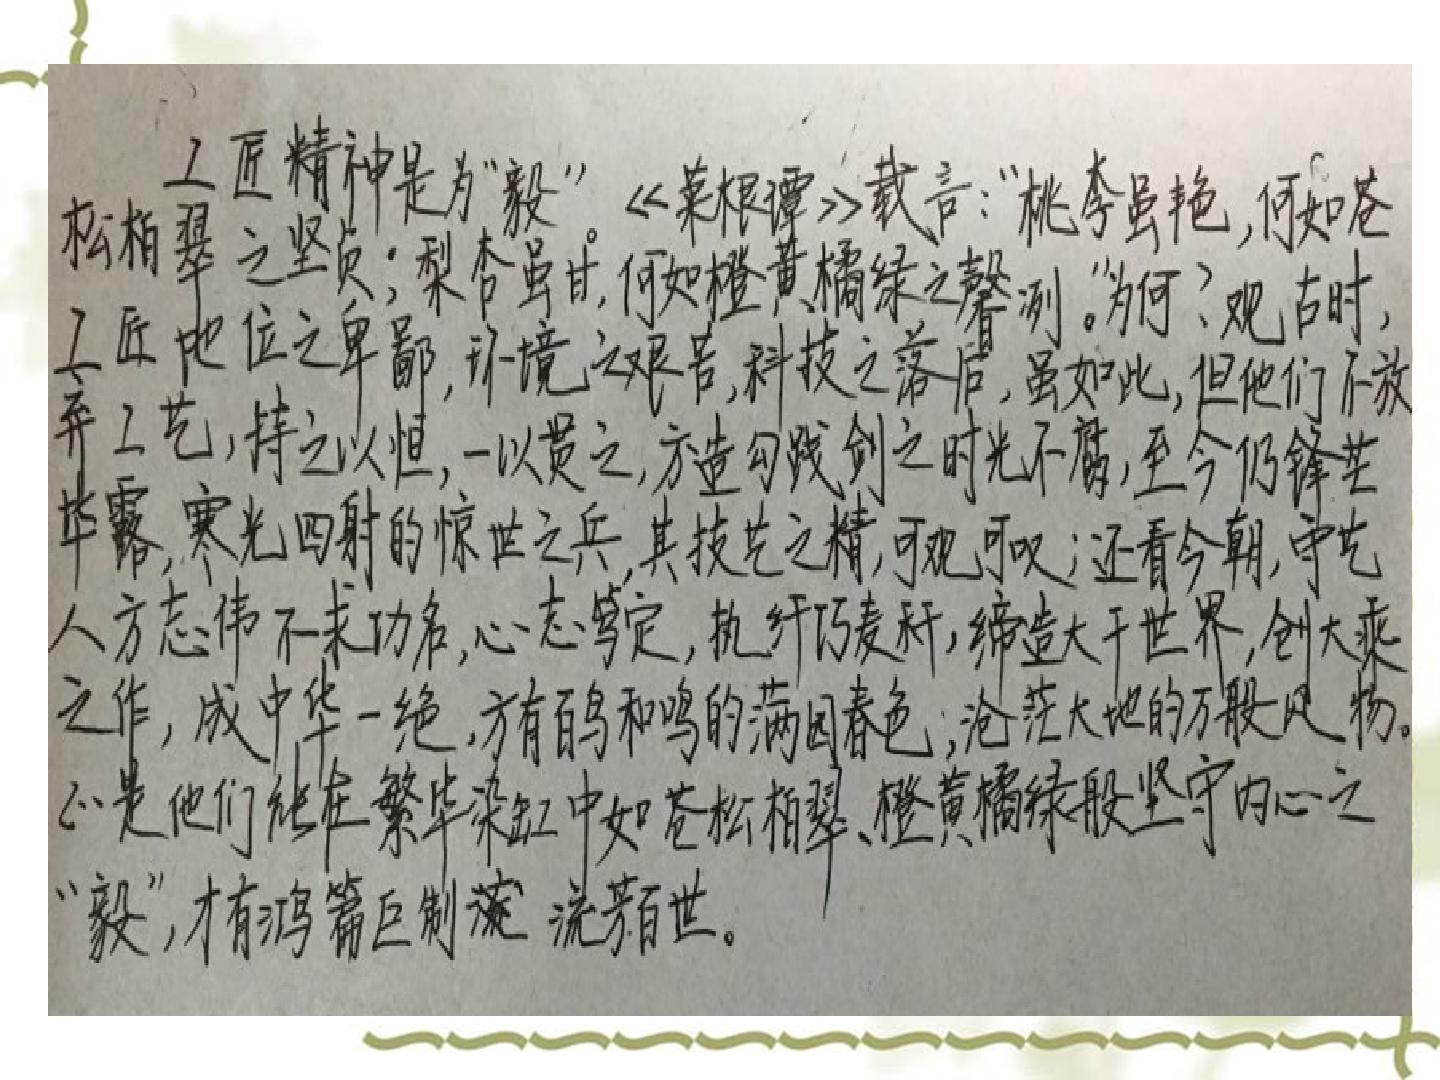 工匠精神是为“毅”。《菜根谭》载言:“桃李虽艳,何如苍
松柏翠之坚贞;梨杏虽甘,何如橙黄橘绿之馨冽。”为何?观古时,
工匠地位之卑鄙,环境之艰苦,科技之落后,虽如此,但他们不放
弃工艺,持之以恒,一以贯之,方造勾践剑之时光不腐,至今仍锋芒
毕露,寒光四射的惊世之兵,其技艺之精,可观可叹;还看今朝,守艺
人方志伟不求功名,心志笃定,执纤巧麦秆,缔造大千世界,创大乘
之作,成中华一绝,方有百鸟和鸣的满园春色;沧茫大地的万般风物。
正是他们能在繁华染缸中如苍松柏翠、橙黄橘绿般坚守内心之
“毅”,才有鸿篇巨制 流芳百世。